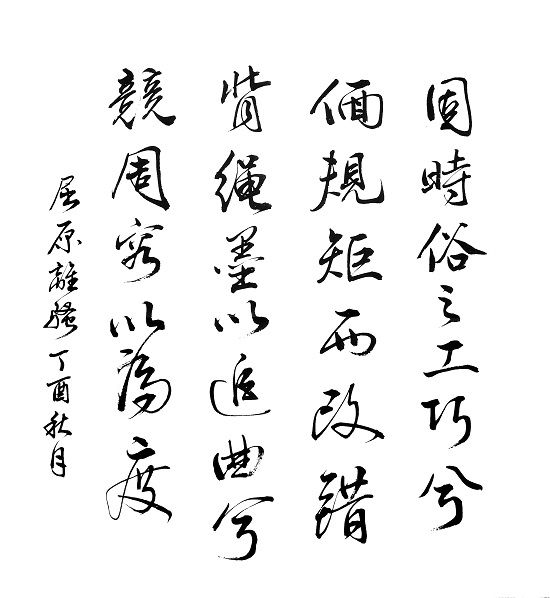 固時俗之工巧兮
偭規矩而改錯
背绳墨以追曲兮
競周容以為度
屈原離骚丁酉秋月